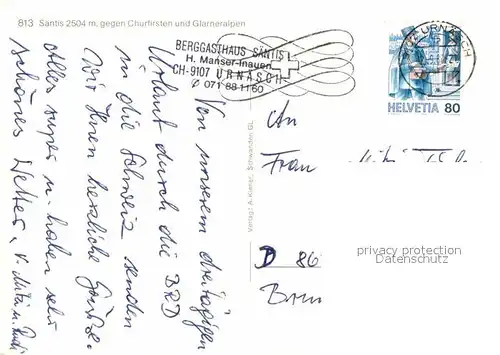 813 Säntis 2504 m, gegen Churfirsten und Glarneralpen
BERGGASTHAUS SÄNTIS
H. Manser-Inauen
CH-9107 URNÄSCH
✆ 071 88 11 60
URNÄSCH
HELVETIA 80
Von unserem dreitägigen
Urlaub durch die BRD
in die Schweiz senden
wir Ihnen herzliche Grüsse.
Alles super u. haben sehr
schönes Wetter,
Verlag: A. Schwanden GL
An
Frau
D 86
privacy protection
Datenschutz